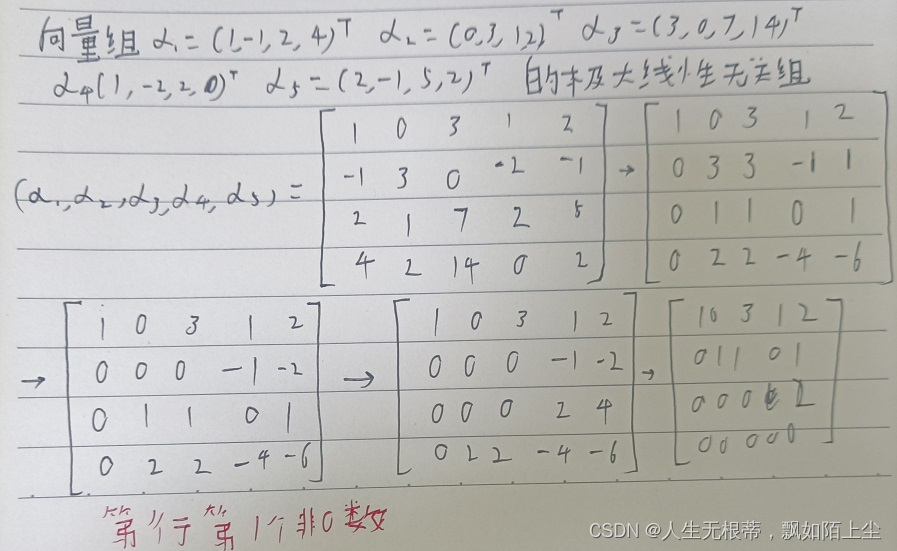 向量组 α₁=(1,-1,2,4)ᵀ α₂=(0,3,1,2)ᵀ α₃=(3,0,7,14)ᵀ
α₄(1,-2,2,0)ᵀ α₅=(2,-1,5,2)ᵀ 的极大线性无关组
1 0 3 1 2 1 0 3 1 2
(α₁,α₂,α₃,α₄,α₅)= -1 3 0 -2 -1 → 0 3 3 -1 1
2 1 7 2 5 0 1 1 0 1
4 2 14 0 2 0 2 2 -4 -6
1 0 3 1 2 1 0 3 1 2 1 0 3 1 2
→ 0 0 0 -1 -2 → 0 0 0 -1 -2 → 0 1 1 0 1
0 1 1 0 1 0 0 0 2 4 0 0 0 2
0 2 2 -4 -6 0 2 2 -4 -6 0 0 0 0 0
第1行第1个非0数
CSDN @人生无根蒂，飘如陌上尘